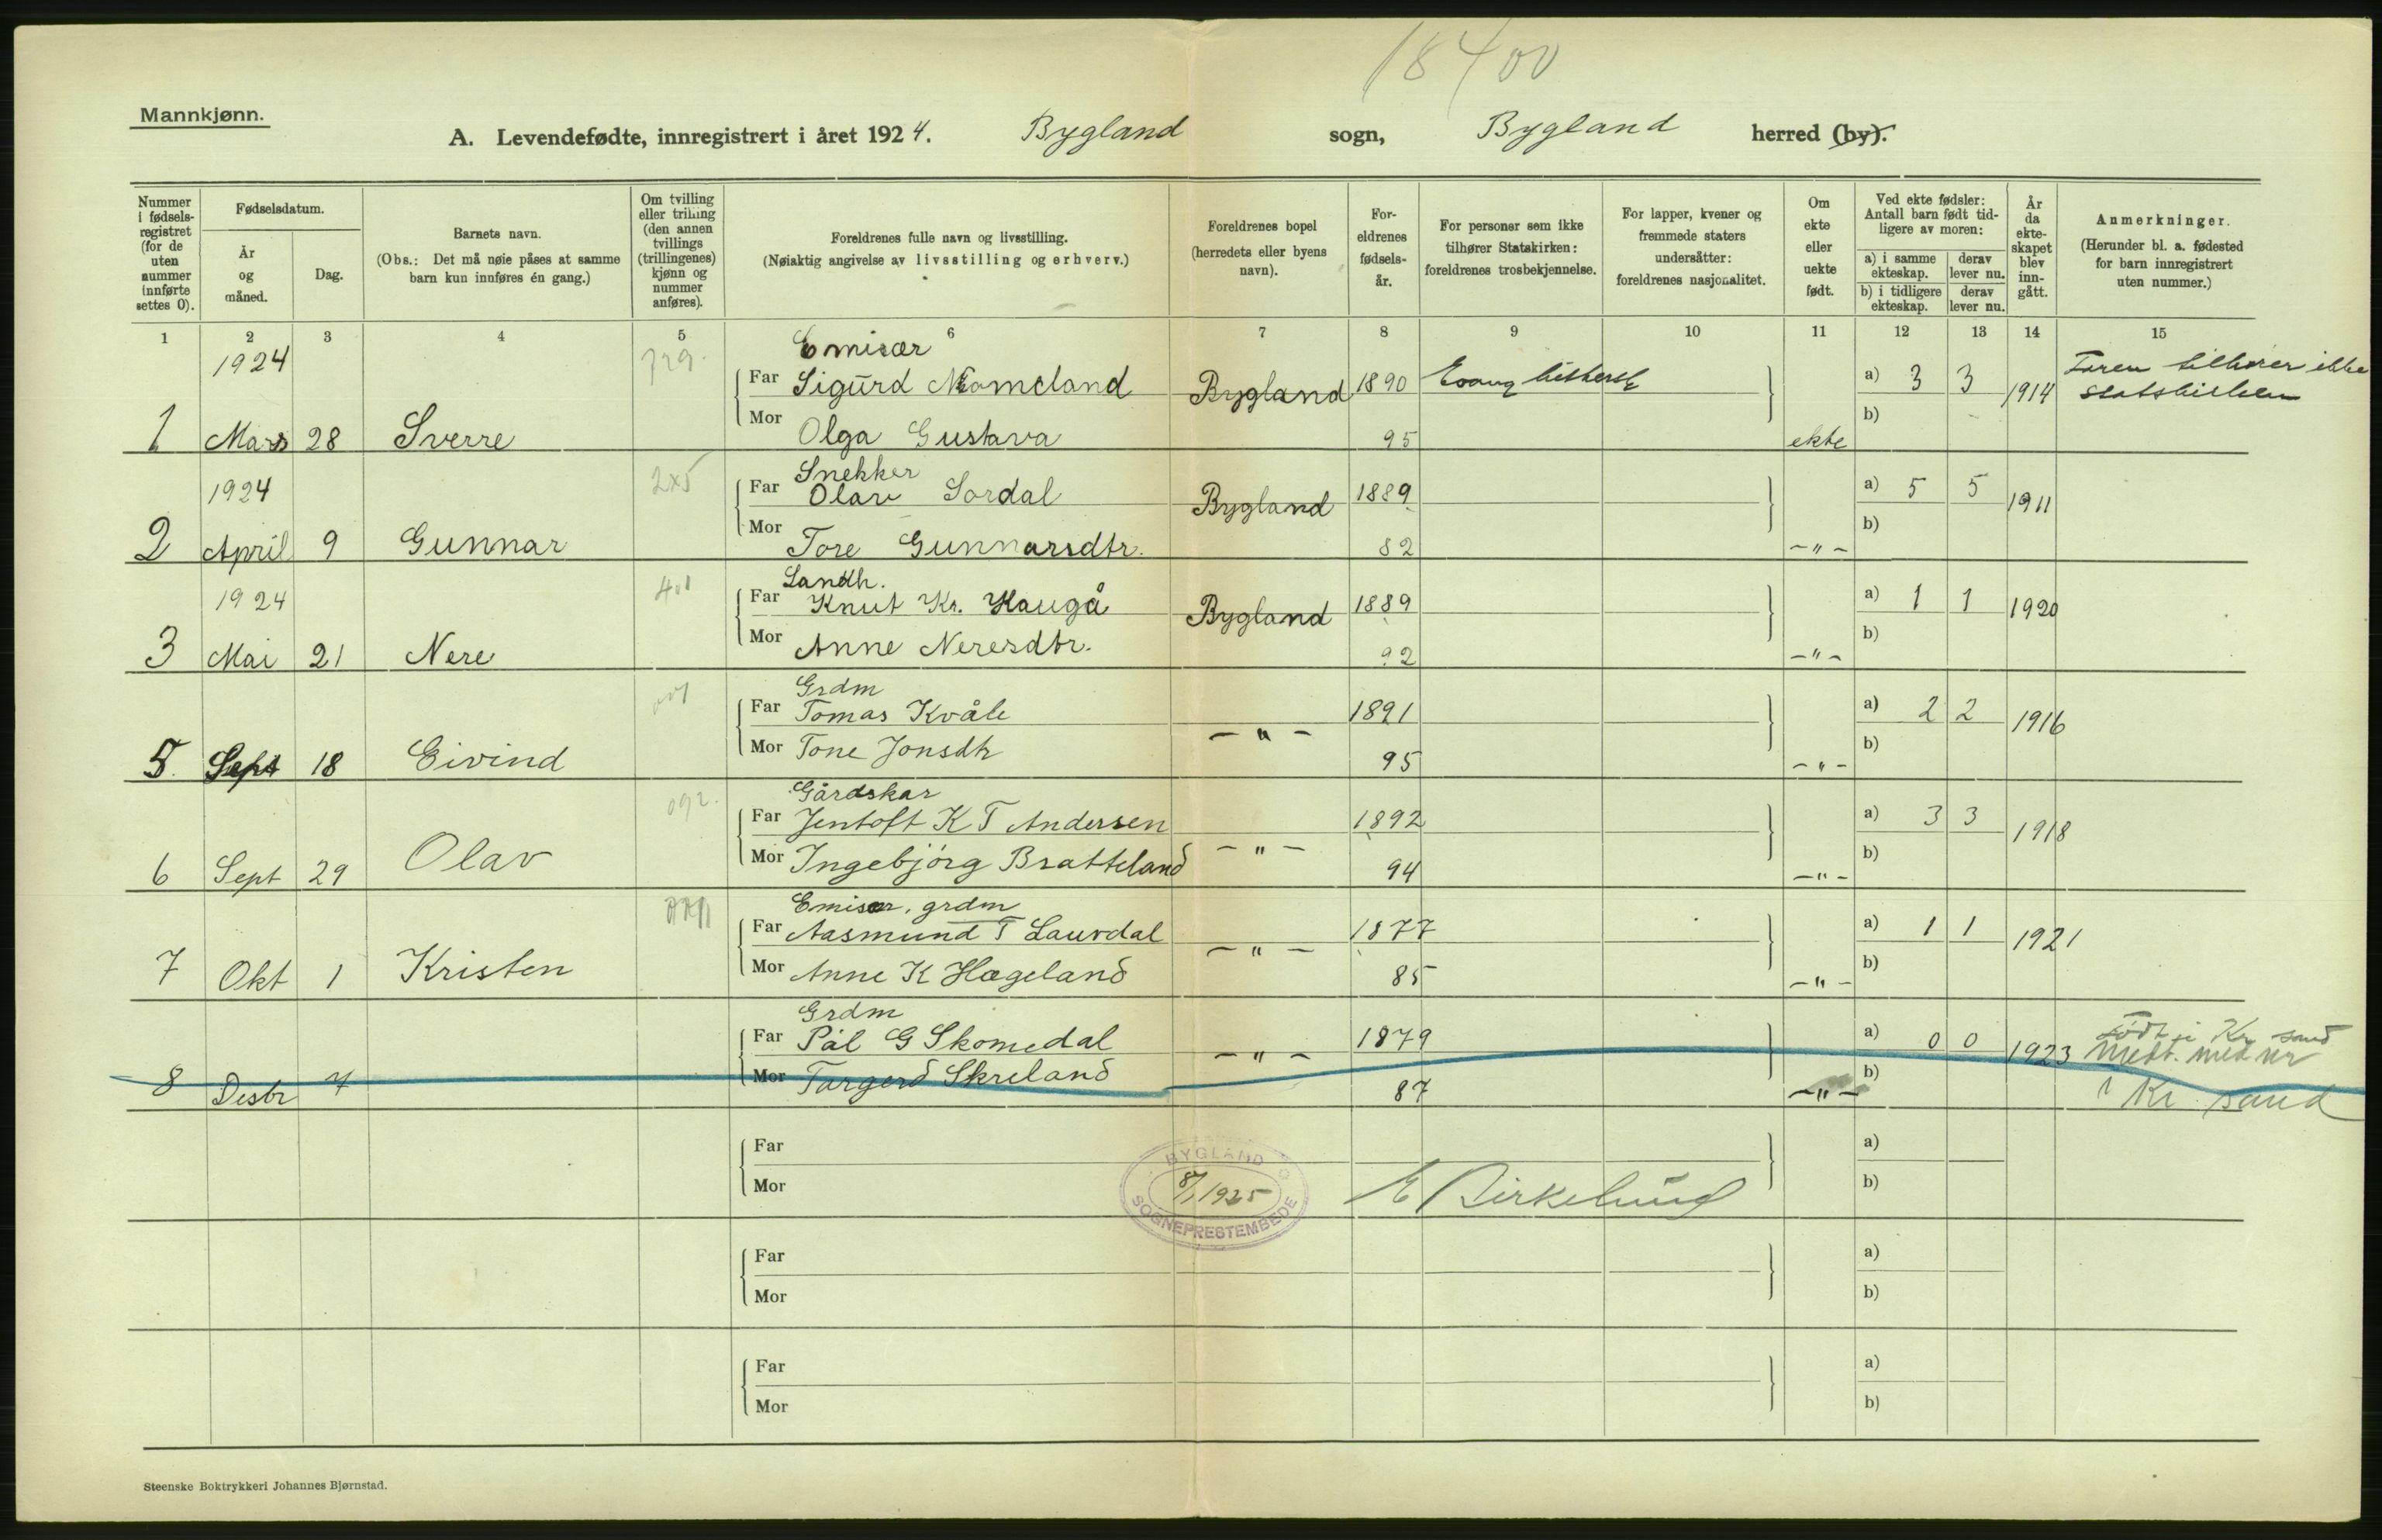 18400
Mannkjønn.
A. Levendefødte, innregistrert i året 1924. Bygland sogn, Bygland herred (by).
Nummer i fødsels-registret (for de uten nummer innførte settes 0).
Fødselsdatum.
År og måned.
Dag.
Barnets navn.
(Obs.: Det må nøie påses at samme barn kun innføres én gang.)
Om tvilling eller trilling (den annen tvillings (trillingenes) kjønn og nummer anføres).
Foreldrenes fulle navn og livsstilling.
(Nøiaktig angivelse av livsstilling og erhverv.)
Foreldrenes bopel
(herredets eller byens navn).
For-eldrenes fødsels-år.
For personer som ikke tilhører Statskirken: foreldrenes trosbekjennelse.
For lapper, kvener og fremmede staters undersåtter: foreldrenes nasjonalitet.
Om ekte eller uekte født.
Ved ekte fødsler: Antall barn født tid-ligere av moren:
a) i samme ekteskap.
derav lever nu.
b) i tidligere ekteskap.
derav lever nu.
År da ekte-skapet blev inn-gått.
Anmerkninger.
(Herunder bl. a. fødested for barn innregistrert uten nummer.)
1 2 3 4 5 6 7 8 9 10 11 12 13 14 15
1924 729. Emisær
Far Sigurd Momeland Bygland 1890 Evang luthersk a) 3 3 1914 Faren tilhører ikke statskirken
1 Mars 28 Sverre Mor Olga Gustava 95 ekte b)
1924 2x5 Snekker
Far Olav Sordal Bygland 1889 a) 5 5 1911
2 April 9 Gunnar Mor Tore Gunnarsdtr. 82 -"- b)
1924 401 Landh.
Far Knut Kr. Haugå Bygland 1889 a) 1 1 1920
3 Mai 21 Nere Mor Anne Neresdtr. 92 -"- b)
Grdm
Far Tomas Kvåle -"- 1891 a) 2 2 1916
5. Sept 18 Eivind Mor Tone Jonsdtr 95 -"- b)
092. Gårdskar
Far Jentoft K T Andersen -"- 1892 a) 3 3 1918
6 Sept 29 Olav Mor Ingebjörg Bratteland 94 -"- b)
Emisær, grdm
Far Aasmund T Lauvdal -"- 1877 a) 1 1 1921
7 Okt 1 Kristen Mor Anne K Hægeland 85 -"- b)
Grdm
Far Pål G Skomedal -"- 1879 a) 0 0 1923 Født i Kr sand
Medt. med nr
8 Desbr 7 Mor Targerd Skreland 87 -"- b) i Kr sand
Far a)
Mor b)
BYGLAND
8/1 1925
SOGNEPRESTEMBEDE
E Birkelund
Far a)
Mor b)
Far a)
Mor b)
Steenske Boktrykkeri Johannes Bjørnstad.